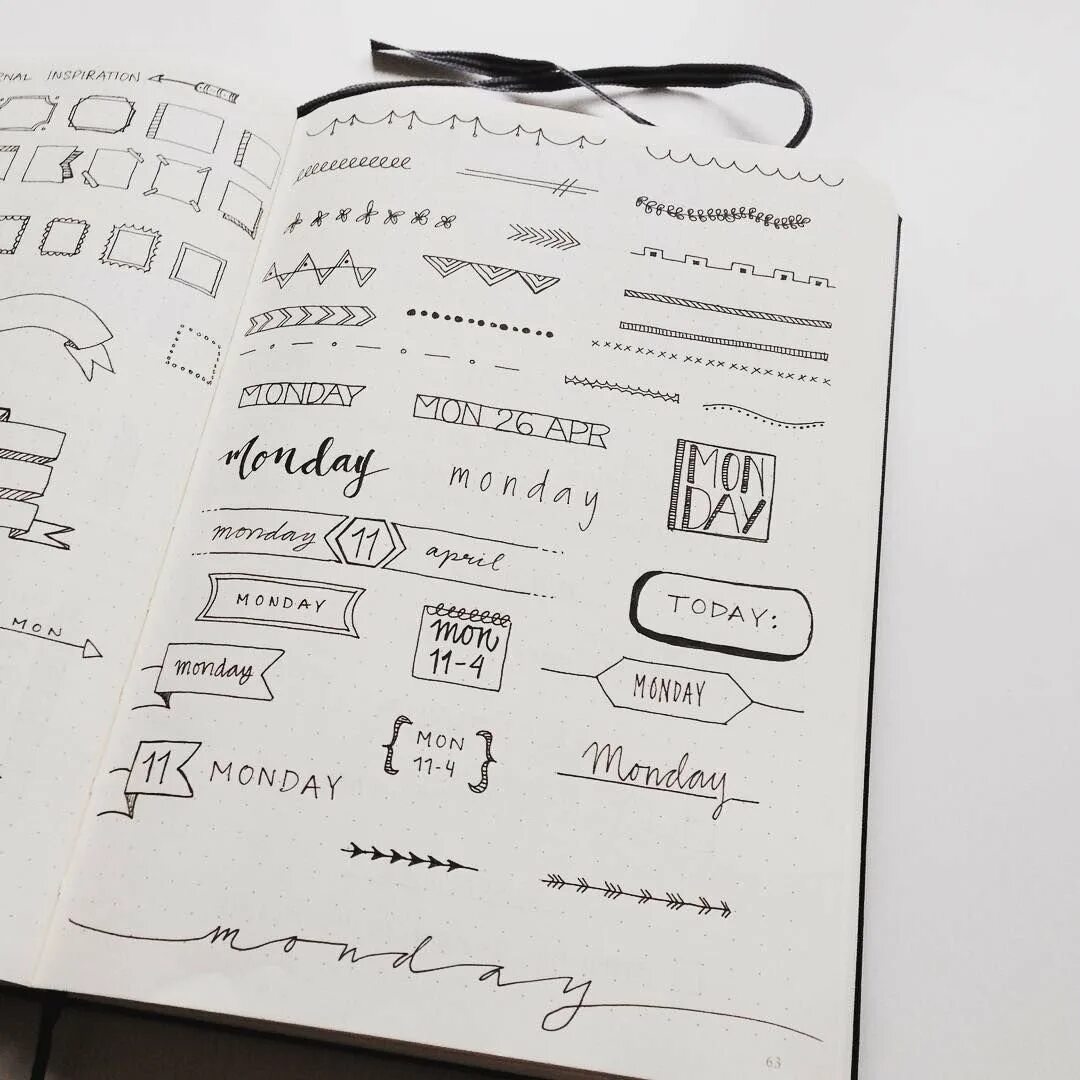 NAL INSPIRATION
MON
MONDAY
MON 26 APR
monday
monday
MON
DAY
monday 11 april
MONDAY
mon
11-4
TODAY:
monday
MONDAY
11 MONDAY
MON
11-4
Monday
monday
63